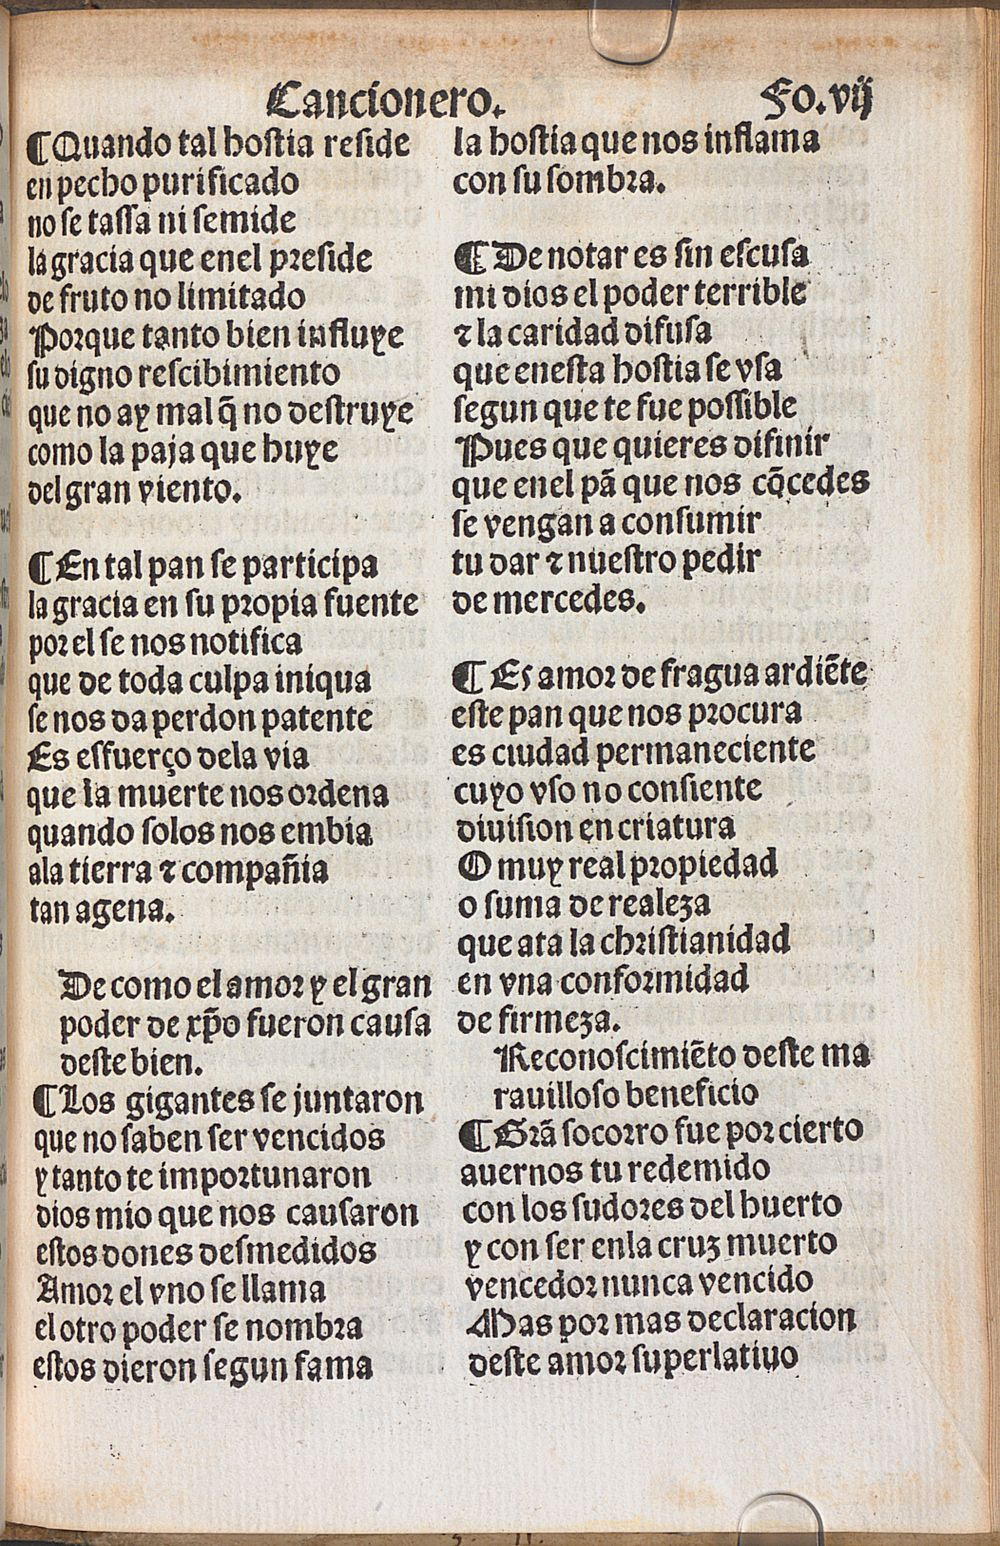 Cancionero. Fo. vij
¶ Quando tal hostia reside
en pecho purificado
no se tassa ni semide
la gracia que enel preside
de fruto no limitado
Porque tanto bien influye
su digno rescibimiento
que no ay mal q̄ no destruye
como la paja que huye
del gran viento.
¶ En tal pan se participa
la gracia en su propia fuente
por el se nos notifica
que de toda culpa iniqua
se nos da perdon patente
Es esfuerço dela via
que la muerte nos ordena
quando solos nos embia
ala tierra ⁊ compañia
tan agena.
De como el amor y el gran
poder de xp̄o fueron causa
deste bien.
¶ Los gigantes se juntaron
que no saben ser vencidos
y tanto te importunaron
dios mio que nos causaron
estos dones desmedidos
Amor el vno se llama
el otro poder se nombra
estos dieron segun fama
la hostia que nos inflama
con su sombra.
¶ De notar es sin escusa
mi dios el poder terrible
⁊ la caridad difusa
que enesta hostia se vsa
segun que te fue possible
Pues que quieres difinir
que enel pā que nos cōcedes
se vengan a consumir
tu dar ⁊ nuestro pedir
de mercedes.
¶ Es amor de fragua ardiēte
este pan que nos procura
es ciudad permaneciente
cuyo vso no consiente
diuision en criatura
O muy real propiedad
o suma de realeza
que ata la christianidad
en vna conformidad
de firmeza.
Reconoscimiēto deste ma
rauilloso beneficio
¶ Grā socorro fue por cierto
auernos tu redemido
con los sudores del huerto
y con ser enla cruz muerto
vencedor nunca vencido
Mas por mas declaracion
deste amor superlatiuo